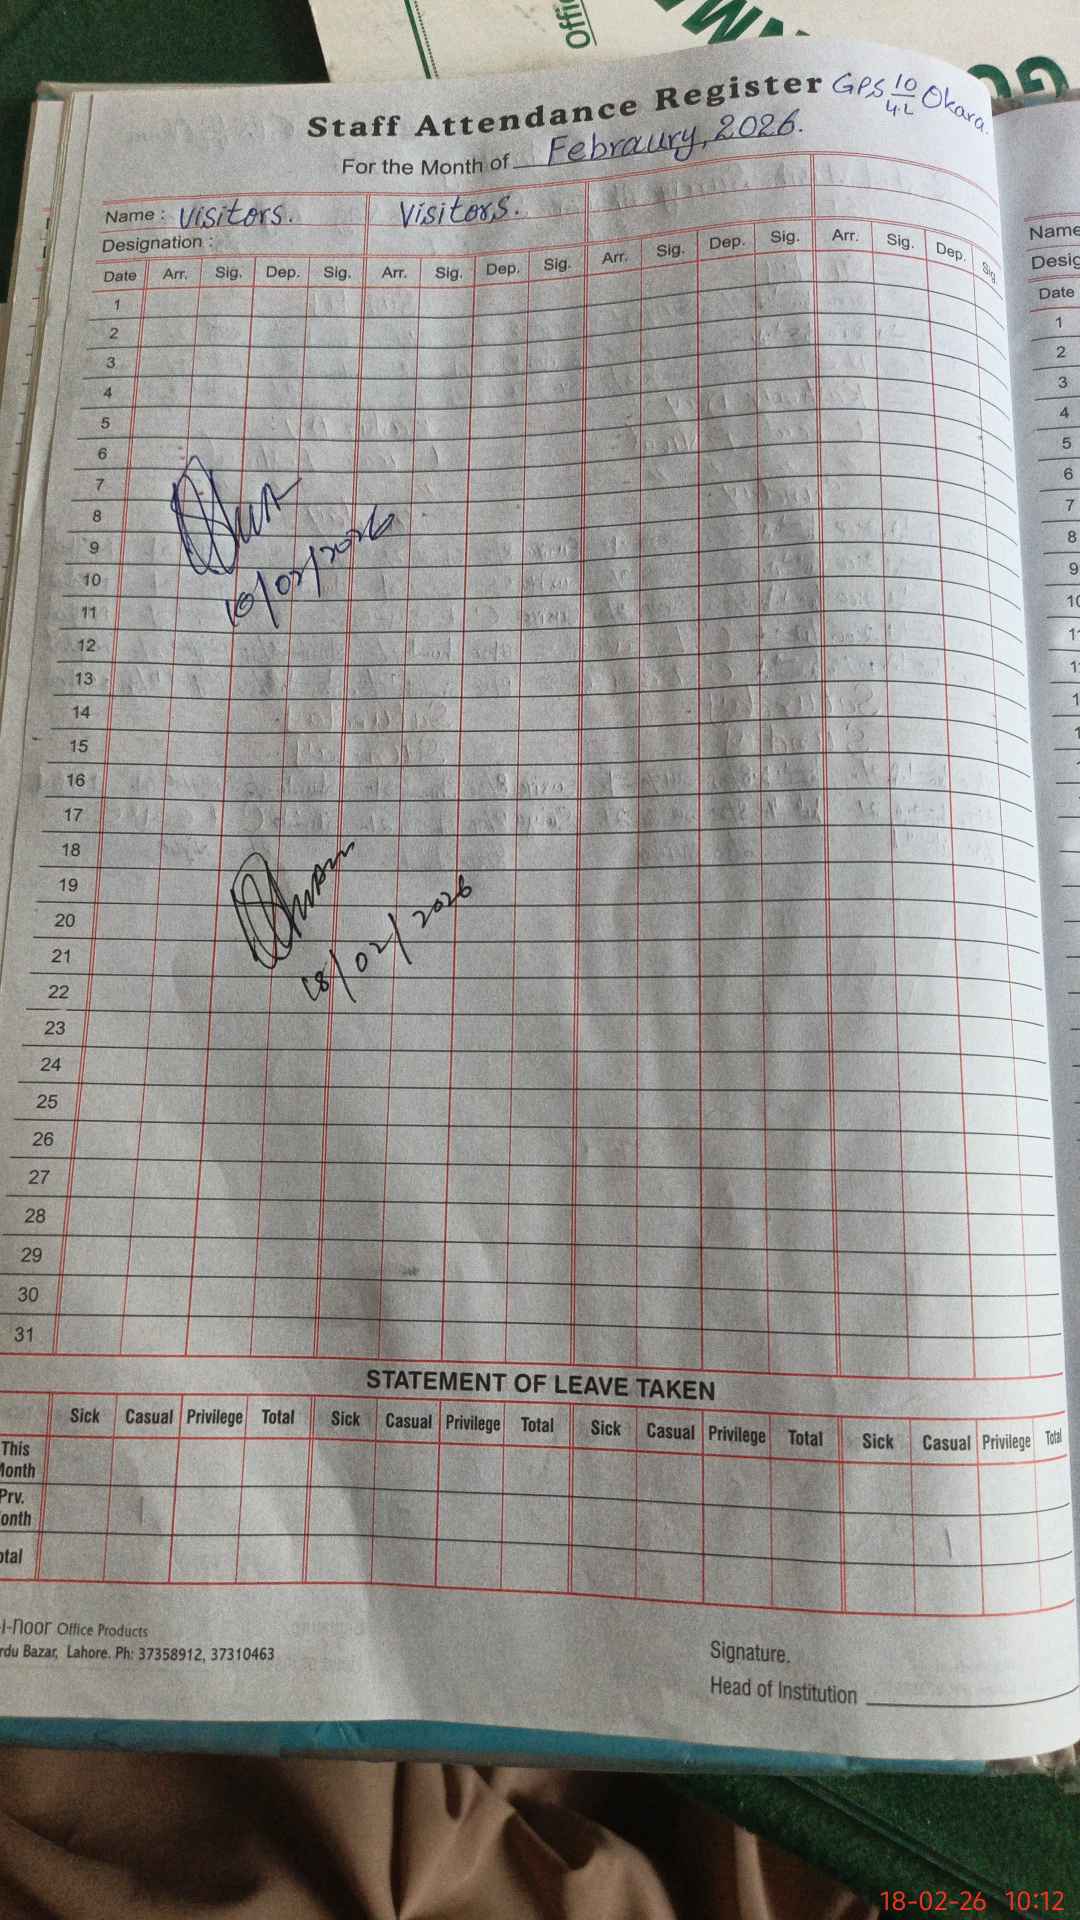 Offic
Staff Attendance Register GPS 10/4.L Okara.
For the Month of Febraury, 2026.
Name : Visitors. Visitors.
Designation :
Date Arr. Sig. Dep. Sig. Arr. Sig. Dep. Sig. Arr. Sig. Dep. Sig. Arr. Sig. Dep. Sig.
1
2
3
4
5
6
7
8
9
10
10/02/2026
11
12
13
14
15
16
17
18
19
20
21
18/02/2026
22
23
24
25
26
27
28
29
30
31
STATEMENT OF LEAVE TAKEN
Sick Casual Privilege Total Sick Casual Privilege Total Sick Casual Privilege Total Sick Casual Privilege Total
This
Month
Prv.
onth
otal
-i-noor Office Products
rdu Bazar, Lahore. Ph: 37358912, 37310463
Signature.
Head of Institution
Name
Desig
Date
1
2
3
4
5
6
7
8
9
10
18-02-26 10:12